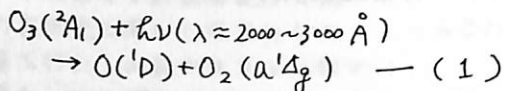 O₃(²A₁) + hν(λ ≈ 2000 ~ 3000 Å)
→ O(¹D) + O₂(a¹Δg) — (1)